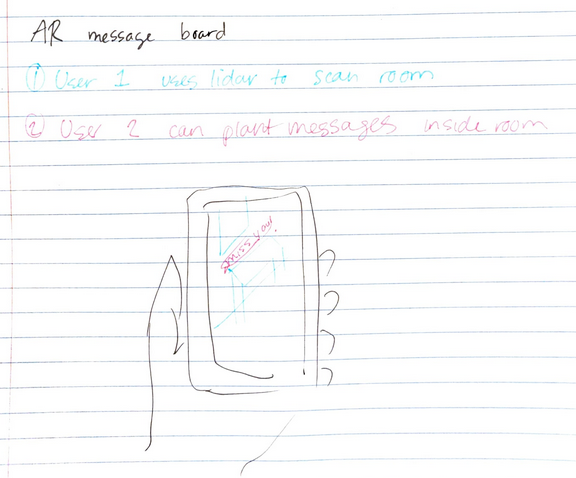 AR message board
① User 1 uses lidar to scan room
② User 2 can plant messages inside room
miss you!